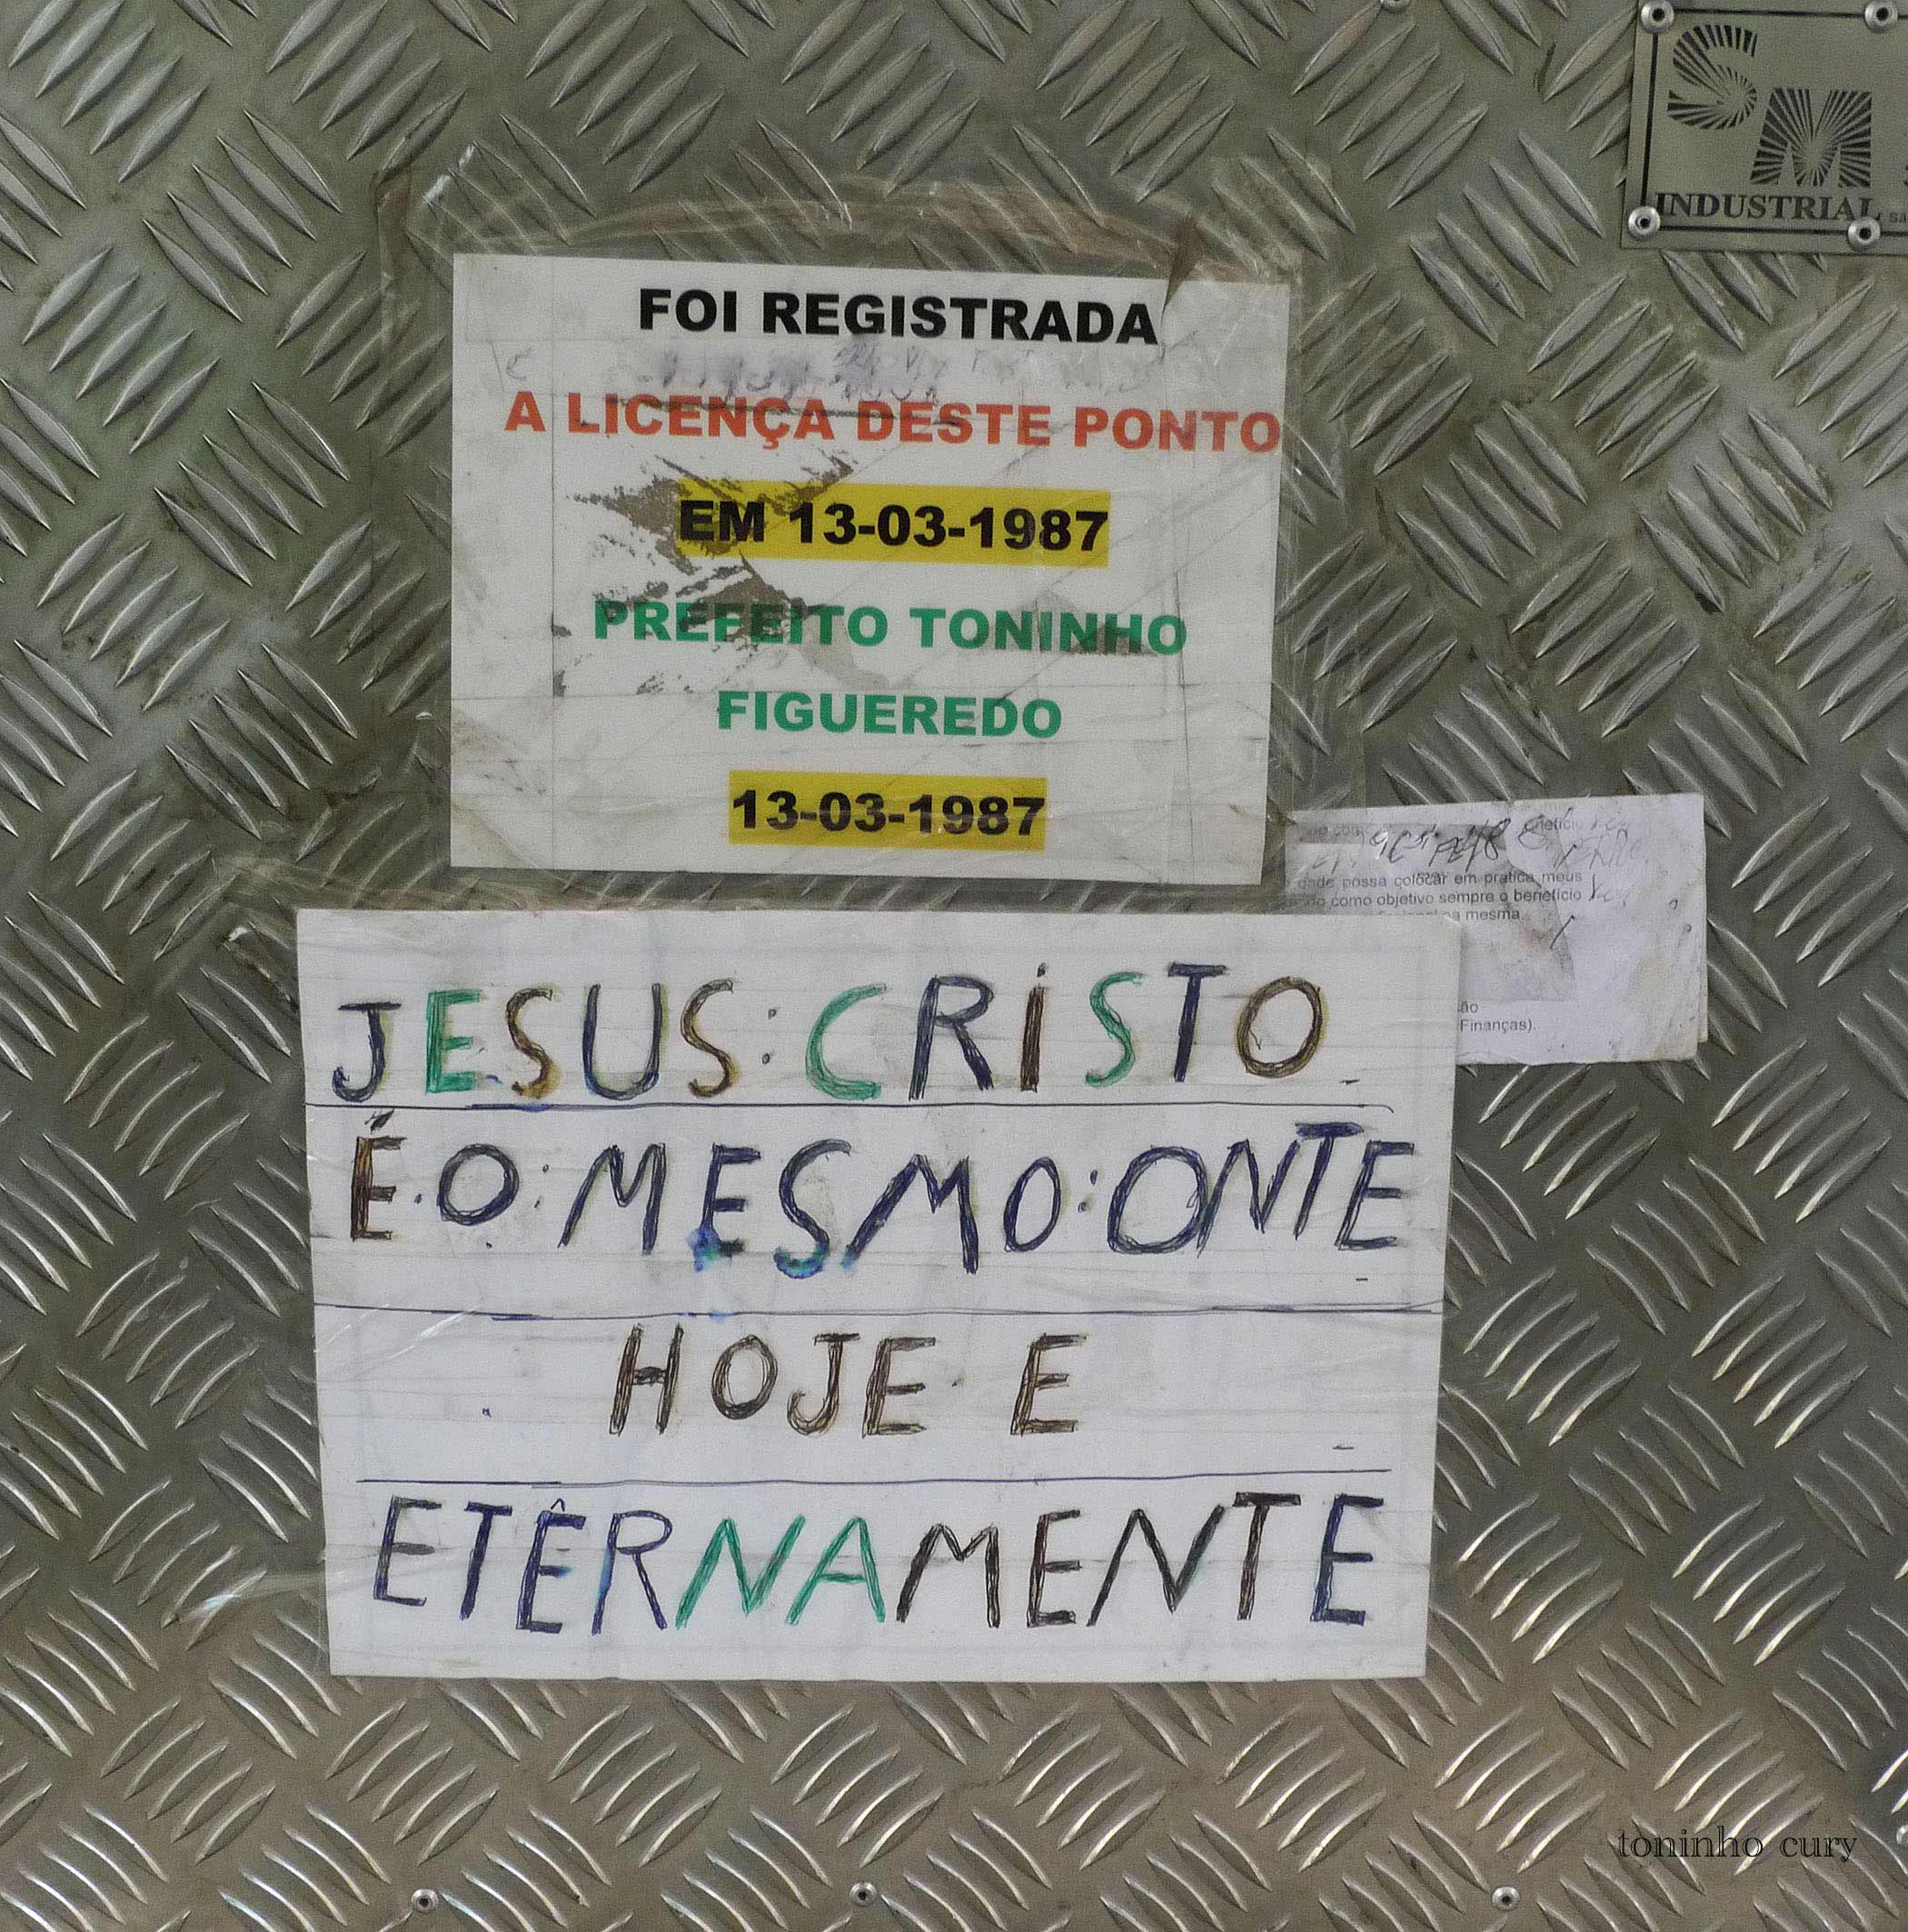 SM
INDUSTRIAL
FOI REGISTRADA
A LICENÇA DESTE PONTO
EM 13-03-1987
PREFEITO TONINHO
FIGUEREDO
13-03-1987
onde possa colocar em pratica meus
como objetivo sempre o benefício
na mesma.
Finanças).
JESUS: CRISTO
É. O: MESMO: ONTE
HOJE E
ETÊRNAMENTE
toninho cury